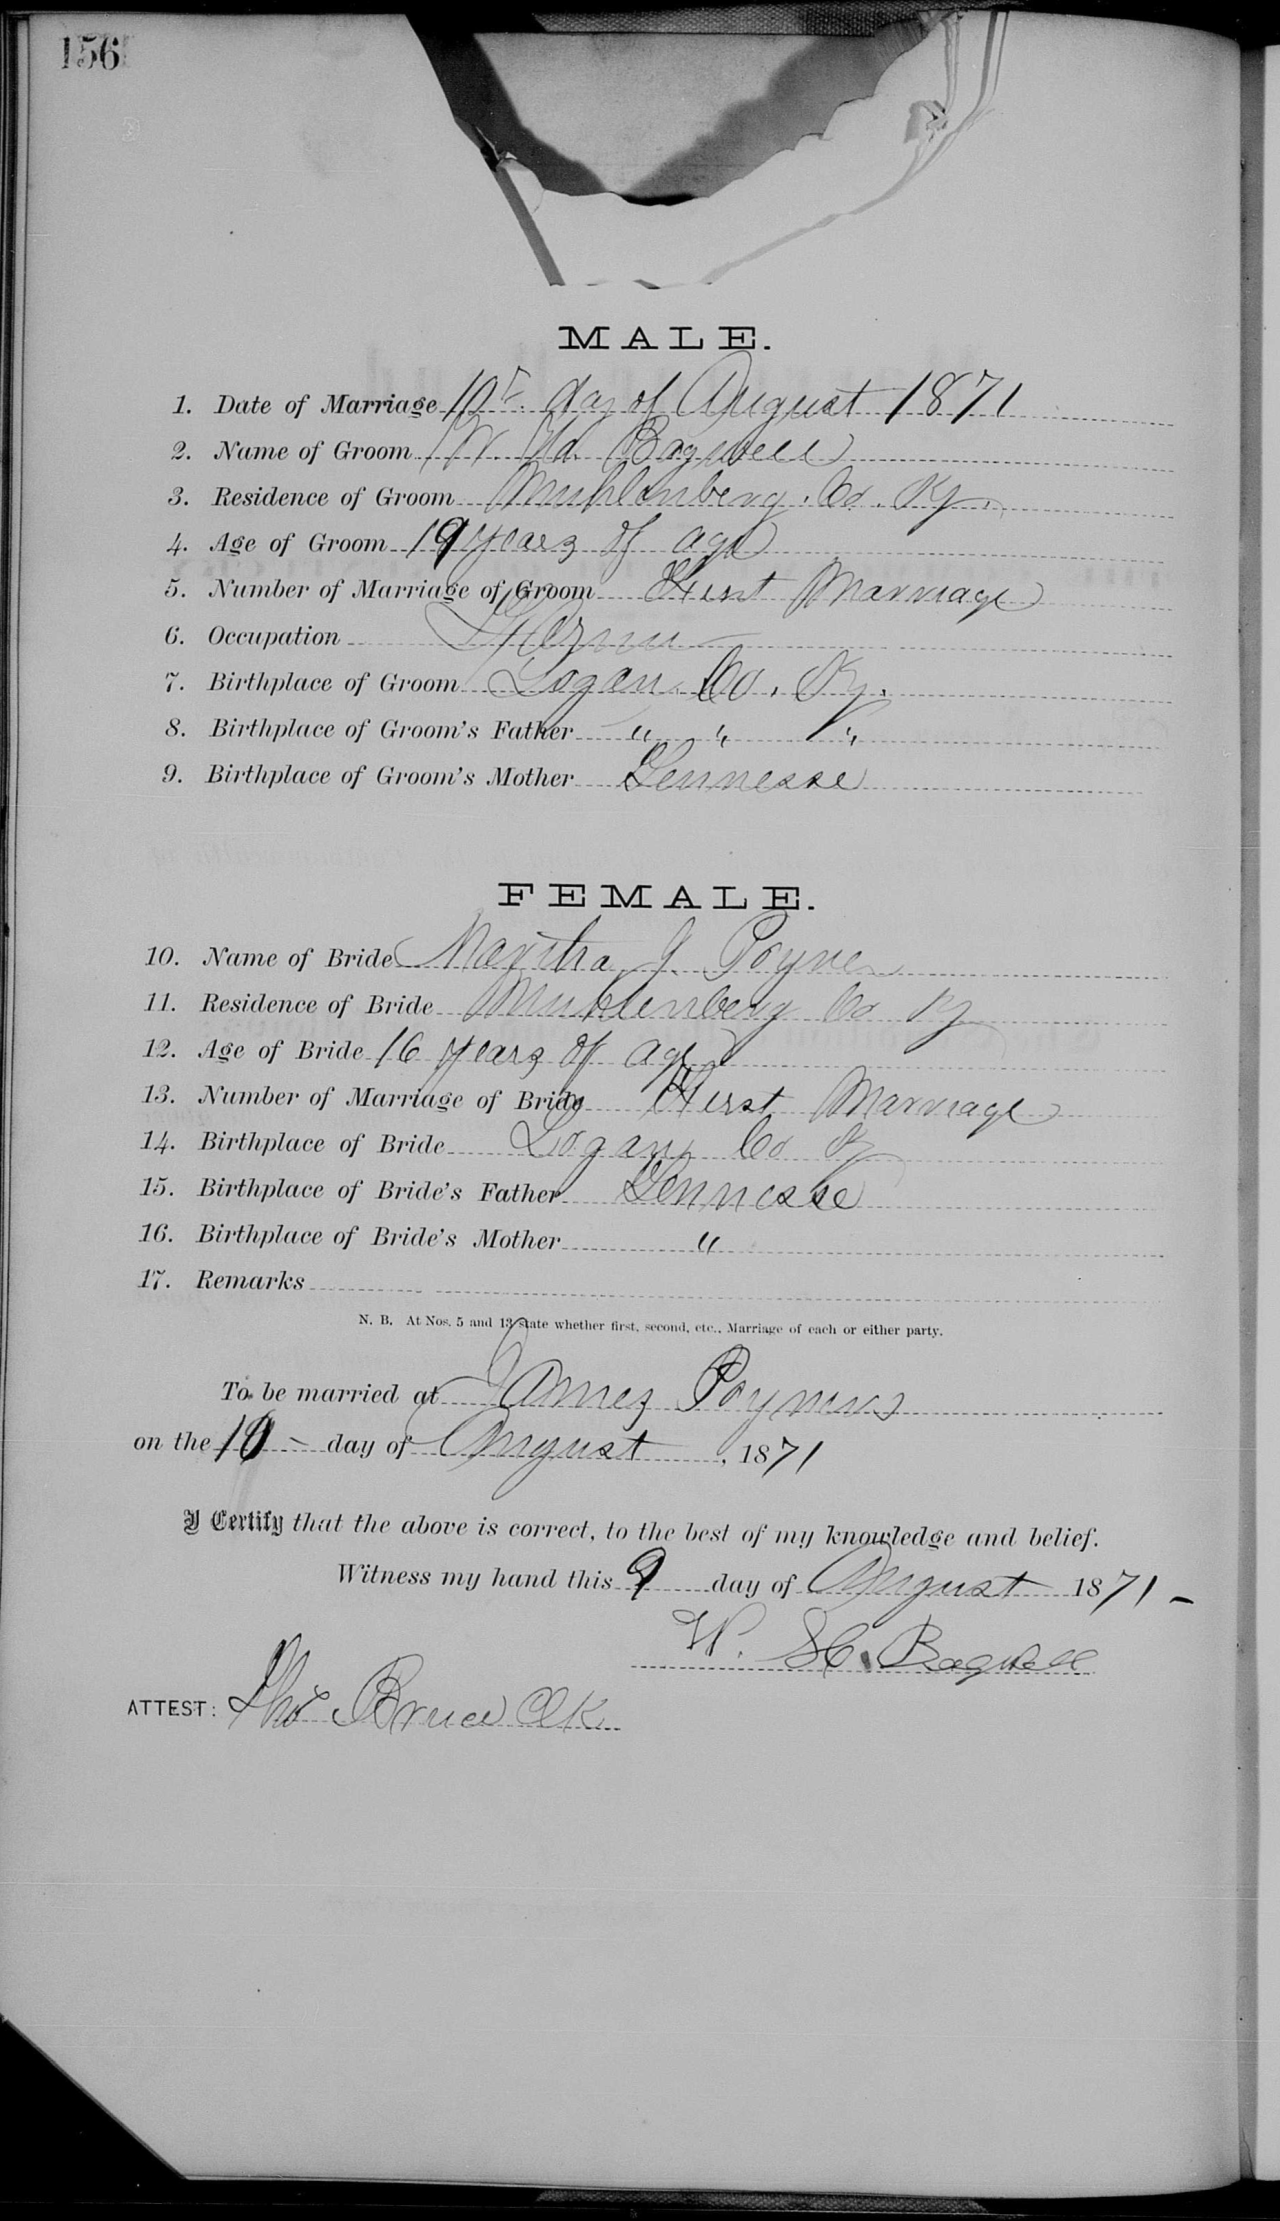 156
MALE.
1. Date of Marriage 10th day of August 1871
2. Name of Groom W. H. Bagwell
3. Residence of Groom Muhlenberg Co. Ky.
4. Age of Groom 19 years of age
5. Number of Marriage of Groom First Marriage
6. Occupation
7. Birthplace of Groom Logan Co. Ky.
8. Birthplace of Groom's Father " " "
9. Birthplace of Groom's Mother Tennesse
FEMALE.
10. Name of Bride Martha J. Poyner
11. Residence of Bride Muhlenberg Co Ky
12. Age of Bride 16 years of age
13. Number of Marriage of Bride First Marriage
14. Birthplace of Bride Logan Co Ky
15. Birthplace of Bride's Father Tennesse
16. Birthplace of Bride's Mother "
17. Remarks
N. B. At Nos. 5 and 13 state whether first, second, etc., Marriage of each or either party.
To be married at James Poyners
on the 10 - day of August, 1871
I Certify that the above is correct, to the best of my knowledge and belief.
Witness my hand this 9 day of August 1871 -
W. H. Bagwell
ATTEST: Tho Bruce Clk